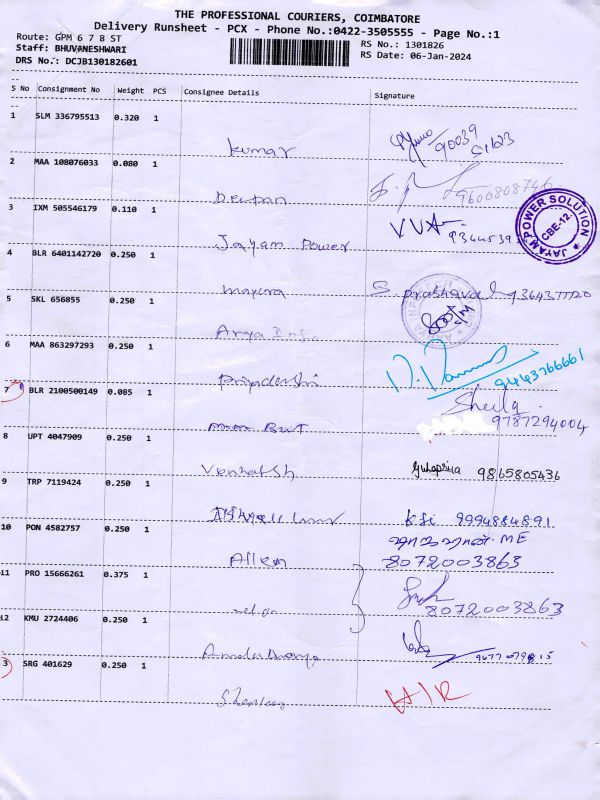 THE PROFESSIONAL COURIERS, COIMBATORE
Delivery Runsheet - PCX - Phone No.:0422-3505555 - Page No.:1
Route: GPM 6 7 8 ST
RS No.: 1301826
Staff: BHUVANESHWARI
RS Date: 06-Jan-2024
DRS No.: DCJB130182601
S No Consignment No Weight PCS Consignee Details Signature
1 SLM 336795513 0.320 1
kumar 90039 51623
2 MAA 108076033 0.080 1
9600808746
3 IXM 505546179 0.110 1
Jayam Power VVA 9344539
JAYAM POWER SOLUTION CBE-12.
4 BLR 6401142720 0.250 1
mayura S. prabhaval 9364377720
5 SKL 656855 0.250 1
Arya Inf.
6 MAA 863297293 0.250 1
Priyadarshi 9443766661
7 BLR 2100500149 0.085 1
Sheila
9787294004
8 UPT 4047909 0.250 1
Venkatsh Guhapriya 9865805436
9 TRP 7119424 0.250 1
9994884891
10 PON 4582757 0.250 1
ME
Allen 8072003863
11 PRO 15666261 0.375 1
8072003863
12 KMU 2724406 0.250 1
13 SRG 401629 0.250 1
H/R